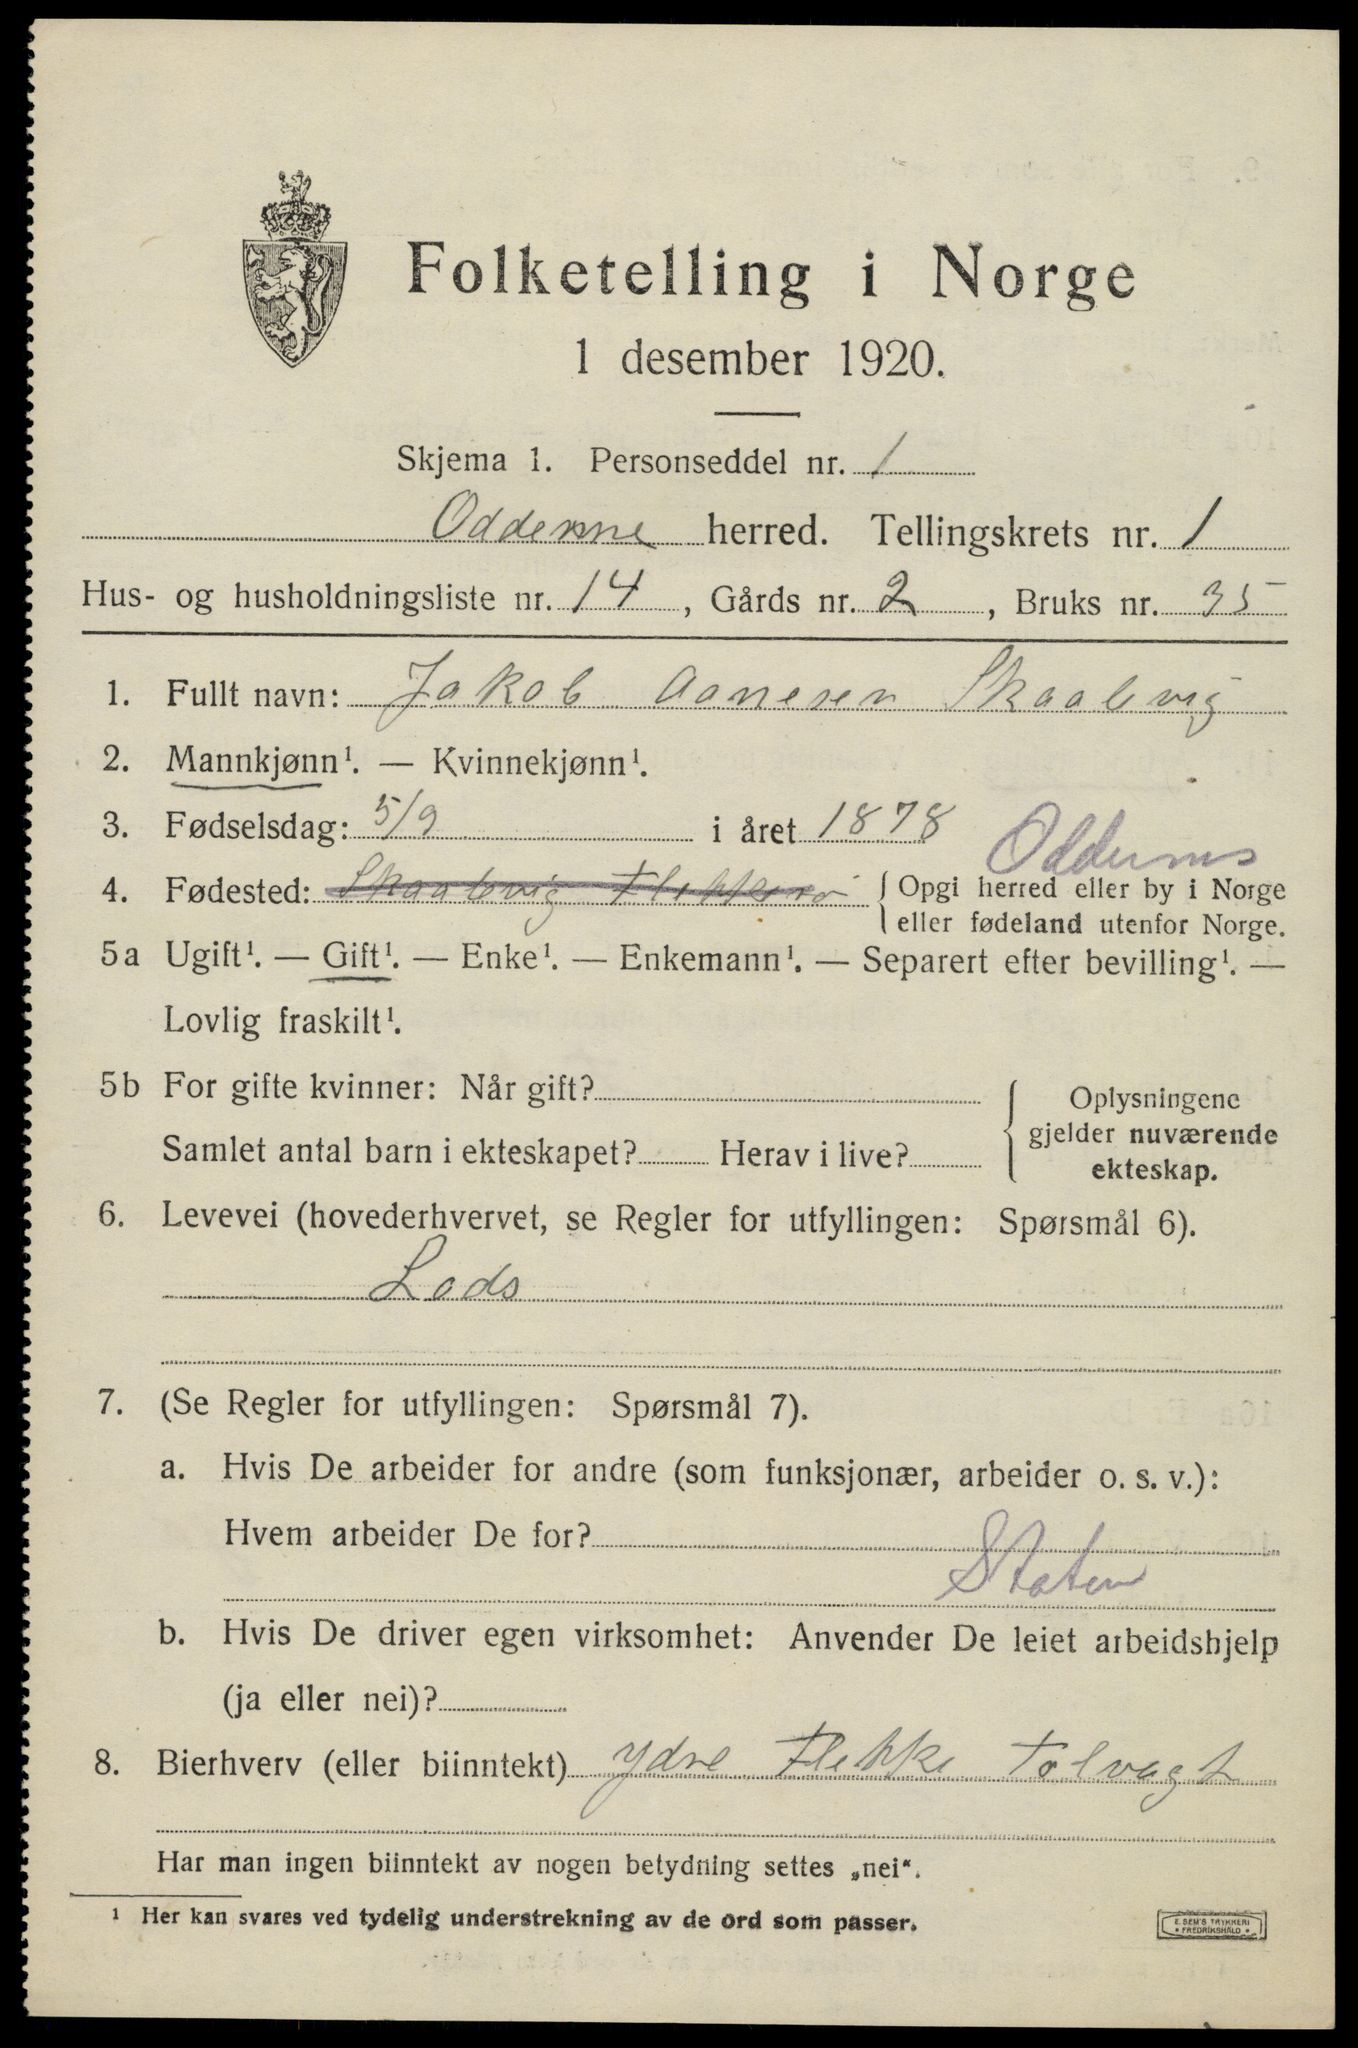 Folketelling i Norge
1 desember 1920.
Skjema 1. Personseddel nr. 1
Oddernes herred. Tellingskrets nr. 1
Hus- og husholdningsliste nr. 14, Gårds nr. 2, Bruks nr. 35
1. Fullt navn: Jakob Aanesen Skaalevig
2. Mannkjønn¹. — Kvinnekjønn¹.
3. Fødselsdag: 5/9 i året 1878
Oddernes
4. Fødested: Skaalevig Flekkerø { Opgi herred eller by i Norge
eller fødeland utenfor Norge.
5a Ugift¹. — Gift¹. — Enke¹. — Enkemann¹. — Separert efter bevilling¹. —
Lovlig fraskilt¹.
5b For gifte kvinner: Når gift?
Samlet antal barn i ekteskapet? Herav i live?
Oplysningene
gjelder nuværende
ekteskap.
6. Levevei (hovederhvervet, se Regler for utfyllingen: Spørsmål 6).
Lods
7. (Se Regler for utfyllingen: Spørsmål 7).
a. Hvis De arbeider for andre (som funksjonær, arbeider o. s. v.):
Hvem arbeider De for?
Staten
b. Hvis De driver egen virksomhet: Anvender De leiet arbeidshjelp
(ja eller nei)?
8. Bierhverv (eller biinntekt) Ydre Flekke Tolvagt
Har man ingen biinntekt av nogen betydning settes „nei“.
¹ Her kan svares ved tydelig understrekning av de ord som passer.
E. SEM'S TRYKKERI
• FREDRIKSHALD •